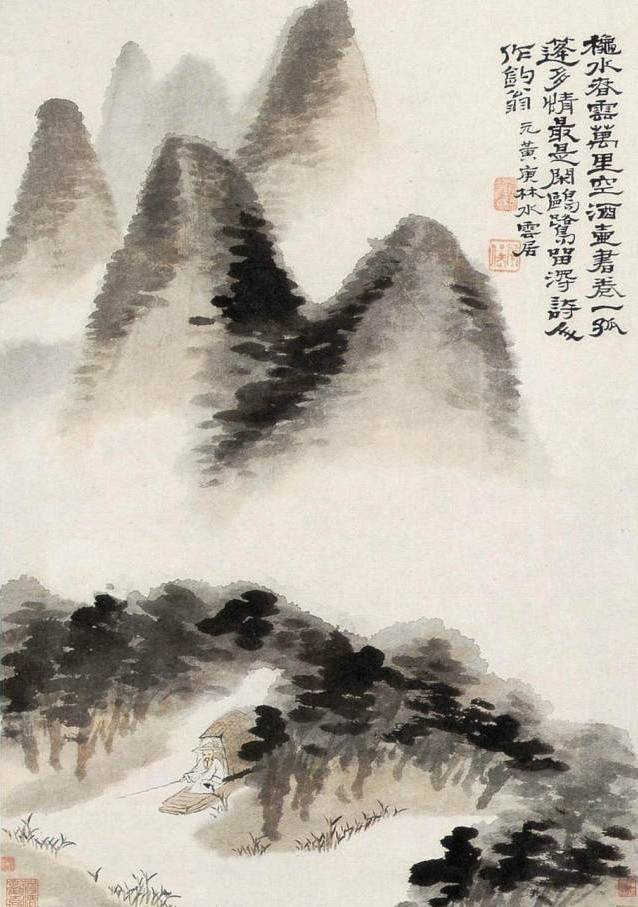 穐水春雲萬里空酒壺書卷一孤
蓬多情最是閑鷗鷺留深詩人
作釣翁 元黃庚林水雲居